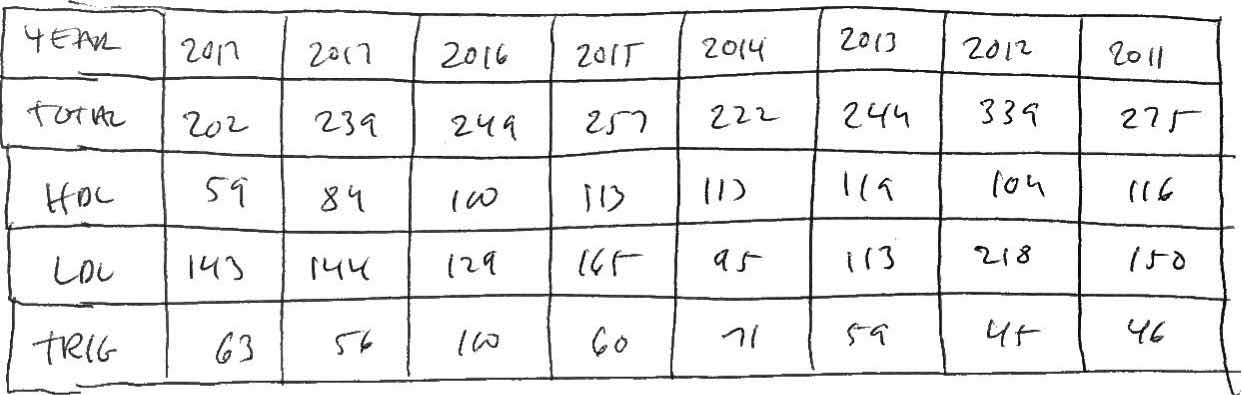 YEAR 2017 2017 2016 2015 2014 2013 2012 2011
TOTAL 202 239 249 257 222 244 339 275
HDL 59 84 100 113 113 119 104 116
LDL 143 144 129 165 95 113 218 150
TRIG 63 56 100 60 71 59 45 46